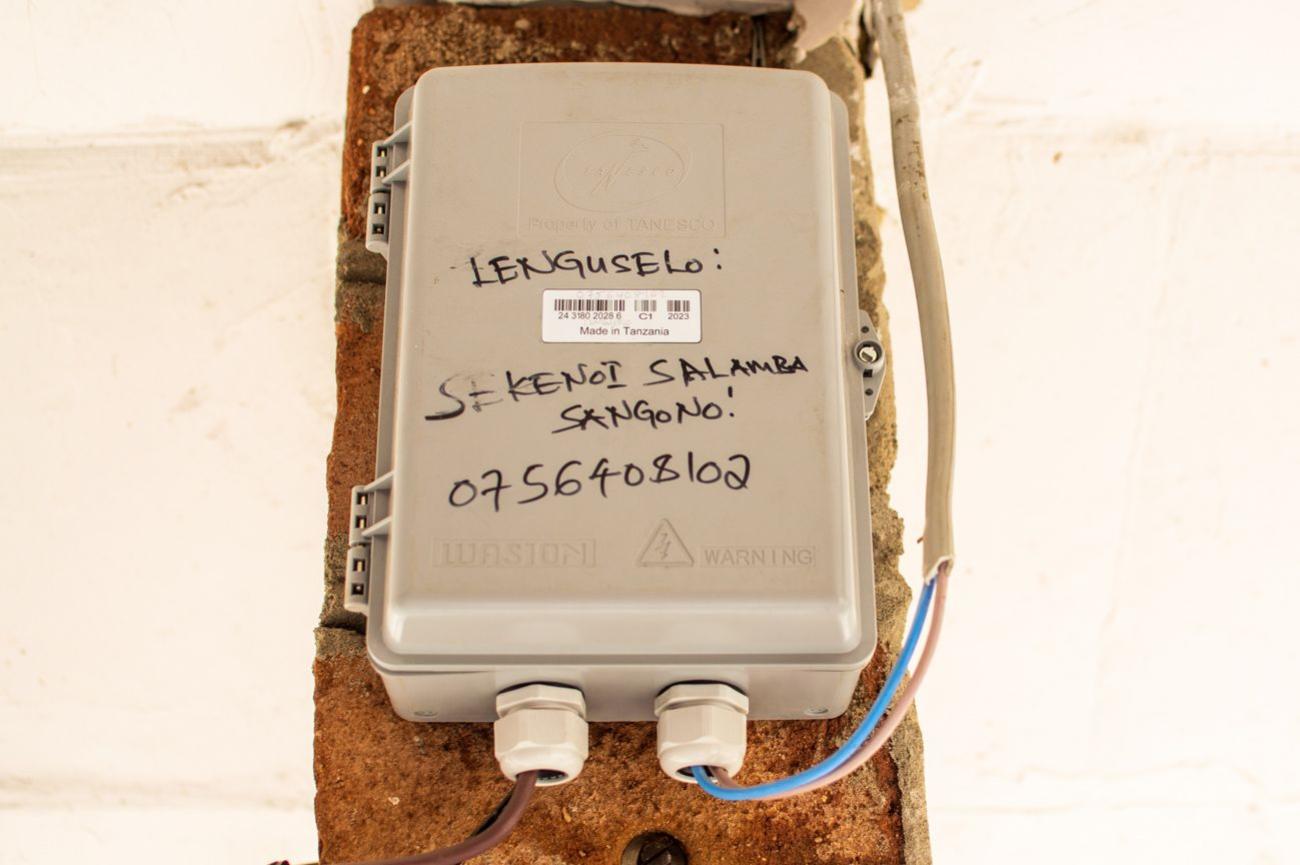 TANESCO
Property of TANESCO
LENGUSELO:
24 3180 2028 6 C1 2023
Made in Tanzania
SEKENOI SALAMBA
SANGONO!
0756408102
WASION
WARNING